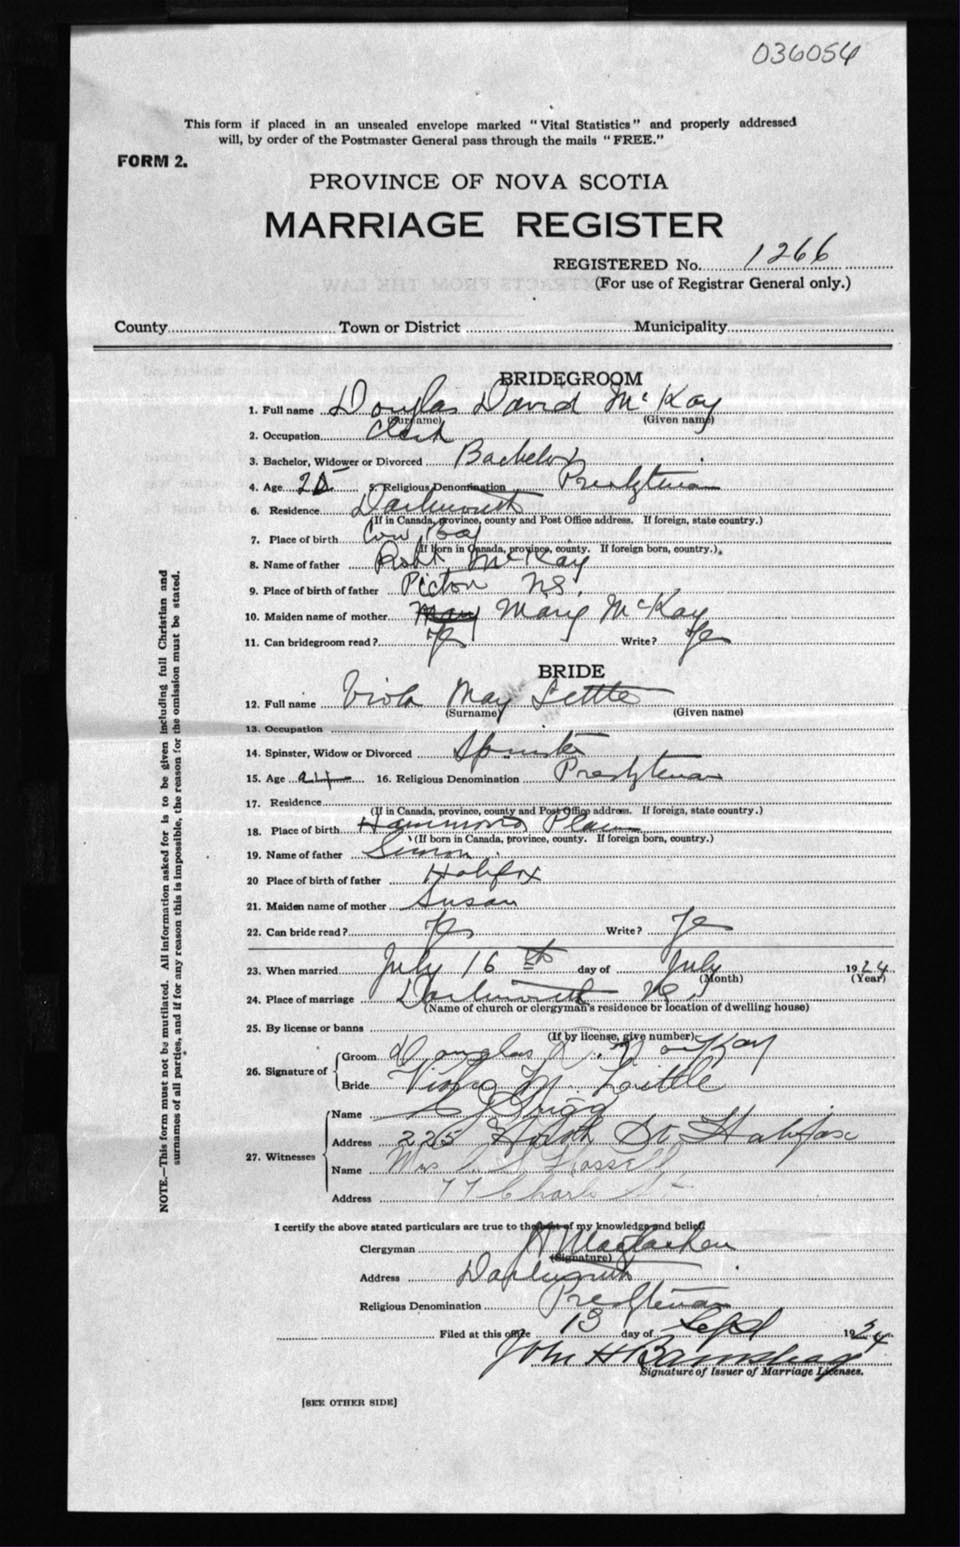 036054
This form if placed in an unsealed envelope marked "Vital Statistics" and properly addressed
will, by order of the Postmaster General pass through the mails "FREE."
FORM 2.
PROVINCE OF NOVA SCOTIA
MARRIAGE REGISTER
REGISTERED No. 1266
(For use of Registrar General only.)
County Town or District Municipality
BRIDEGROOM
1. Full name Douglas David McKay
(Surname) (Given name)
2. Occupation Clerk
3. Bachelor, Widower or Divorced Bachelor
4. Age 5. Religious Denomination Presbyterian
6. Residence Dartmouth
(If in Canada, province, county and Post Office address. If foreign, state country.)
7. Place of birth Cow Bay
(If born in Canada, province, county. If foreign born, country.)
8. Name of father Robt McKay
9. Place of birth of father Pictou NS.
10. Maiden name of mother Mary Mary McKay
11. Can bridegroom read? Yes Write? Yes
BRIDE
12. Full name Viola May Little
(Surname) (Given name)
13. Occupation
14. Spinster, Widow or Divorced Spinster
15. Age 24 16. Religious Denomination Presbyterian
17. Residence
(If in Canada, province, county and Post Office address. If foreign, state country.)
18. Place of birth Hammonds Plains
(If born in Canada, province, county. If foreign born, country.)
19. Name of father Simon
20 Place of birth of father Halifax
21. Maiden name of mother Susan
22. Can bride read? Yes Write? Yes
23. When married July 16th day of July 1924
(Month) (Year)
24. Place of marriage Dartmouth NS
(Name of church or clergyman's residence or location of dwelling house)
25. By license or banns
(If by license, give number)
26. Signature of Groom Douglas D. MacKay
Bride Viola M. Little
27. Witnesses
Name
Address 225 St. Halifax
Name Mrs
Address 77 Charles St
I certify the above stated particulars are true to the best of my knowledge and belief.
Clergyman
(Signature)
Address Dartmouth
Religious Denomination Presbyterian
Filed at this office 13 day of Sept 1924
John H
Signature of Issuer of Marriage Licenses.
[SEE OTHER SIDE]
NOTE.—This form must not be mutilated. All information asked for is to be given including full Christian and
surnames of all parties, and if for any reason this is impossible, the reason for the omission must be stated.